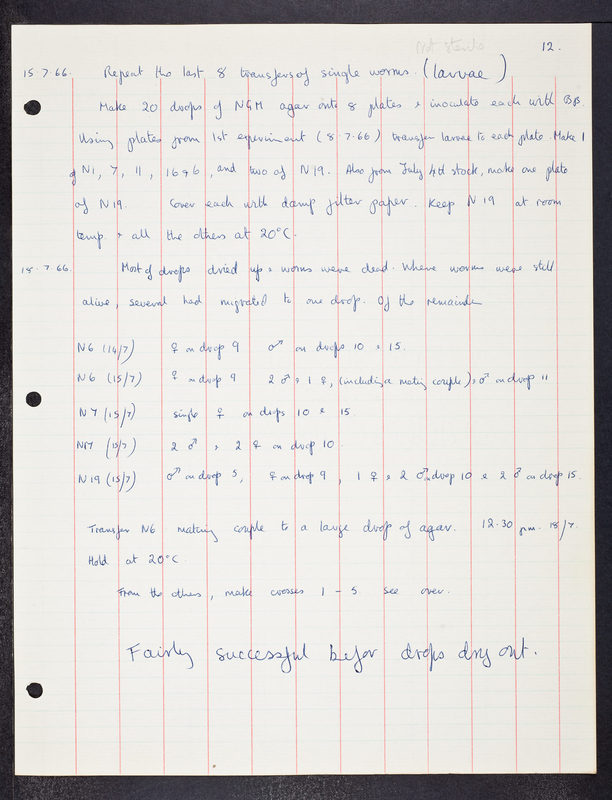 12.
15.7.66. Repeat the last 8 transfers of single worms. (larvae)
Make 20 drops of NGM agar onto 8 plates & inoculate each with BB.
Using plates from 1st experiment (8.7.66) transfer larvae to each plate. Make 1
of N1, 7, 11, 16 & 6, and two of N19. Also from July 4th stock, make one plate
of N19. Cover each with damp filter paper. Keep N19 at room
temp. & all the others at 20°C.
18.7.66. Most of drops dried up & worms were dead. Where worms were still
alive, several had migrated to one drop. Of the remainder
N6 (14/7) ♀ on drop 9 ♂ on drops 10 & 15.
N6 (15/7) ♀ on drop 9 2 ♂ & 1 ♀, (including a mating couple) & ♂ on drop 11
N7 (15/7) single ♀ on drops 10 & 15.
(15/7) 2 ♂ & 2 ♀ on drop 10.
N19 (15/7) ♂ on drop 5, ♀ on drop 9, 1 ♀ & 2 ♂ on drop 10 & 2 ♂ on drop 15.
Transfer N6 mating couple to a large drop of agar. 12.30 pm. 18/7.
Hold at 20°C.
From the others, make crosses 1 - 5 see over.
Fairly successful befor drops dry out.